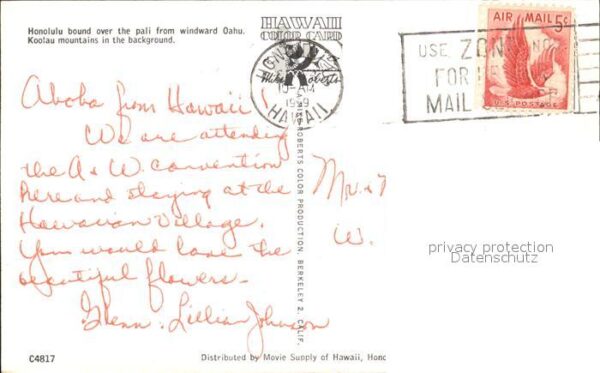 Honolulu bound over the pali from windward Oahu.
Koolau mountains in the background.
HAWAII
COLOR CARD
Mike Roberts
10-AM
HAWAII
USE ZONE NO
FOR
MAIL
AIR MAIL 5¢
U.S. POSTAGE
Aloha from Hawaii!
We are attending
the A & W. convention
here and staying at the
Hawaiian Village.
You would love the
beautiful flowers-
Glenn. Lillian Johnson
ROBERTS COLOR PRODUCTION, BERKELEY 2, CALIF.
Mr. &
W.
privacy protection
Datenschutz
C4817
Distributed by Movie Supply of Hawaii, Hono